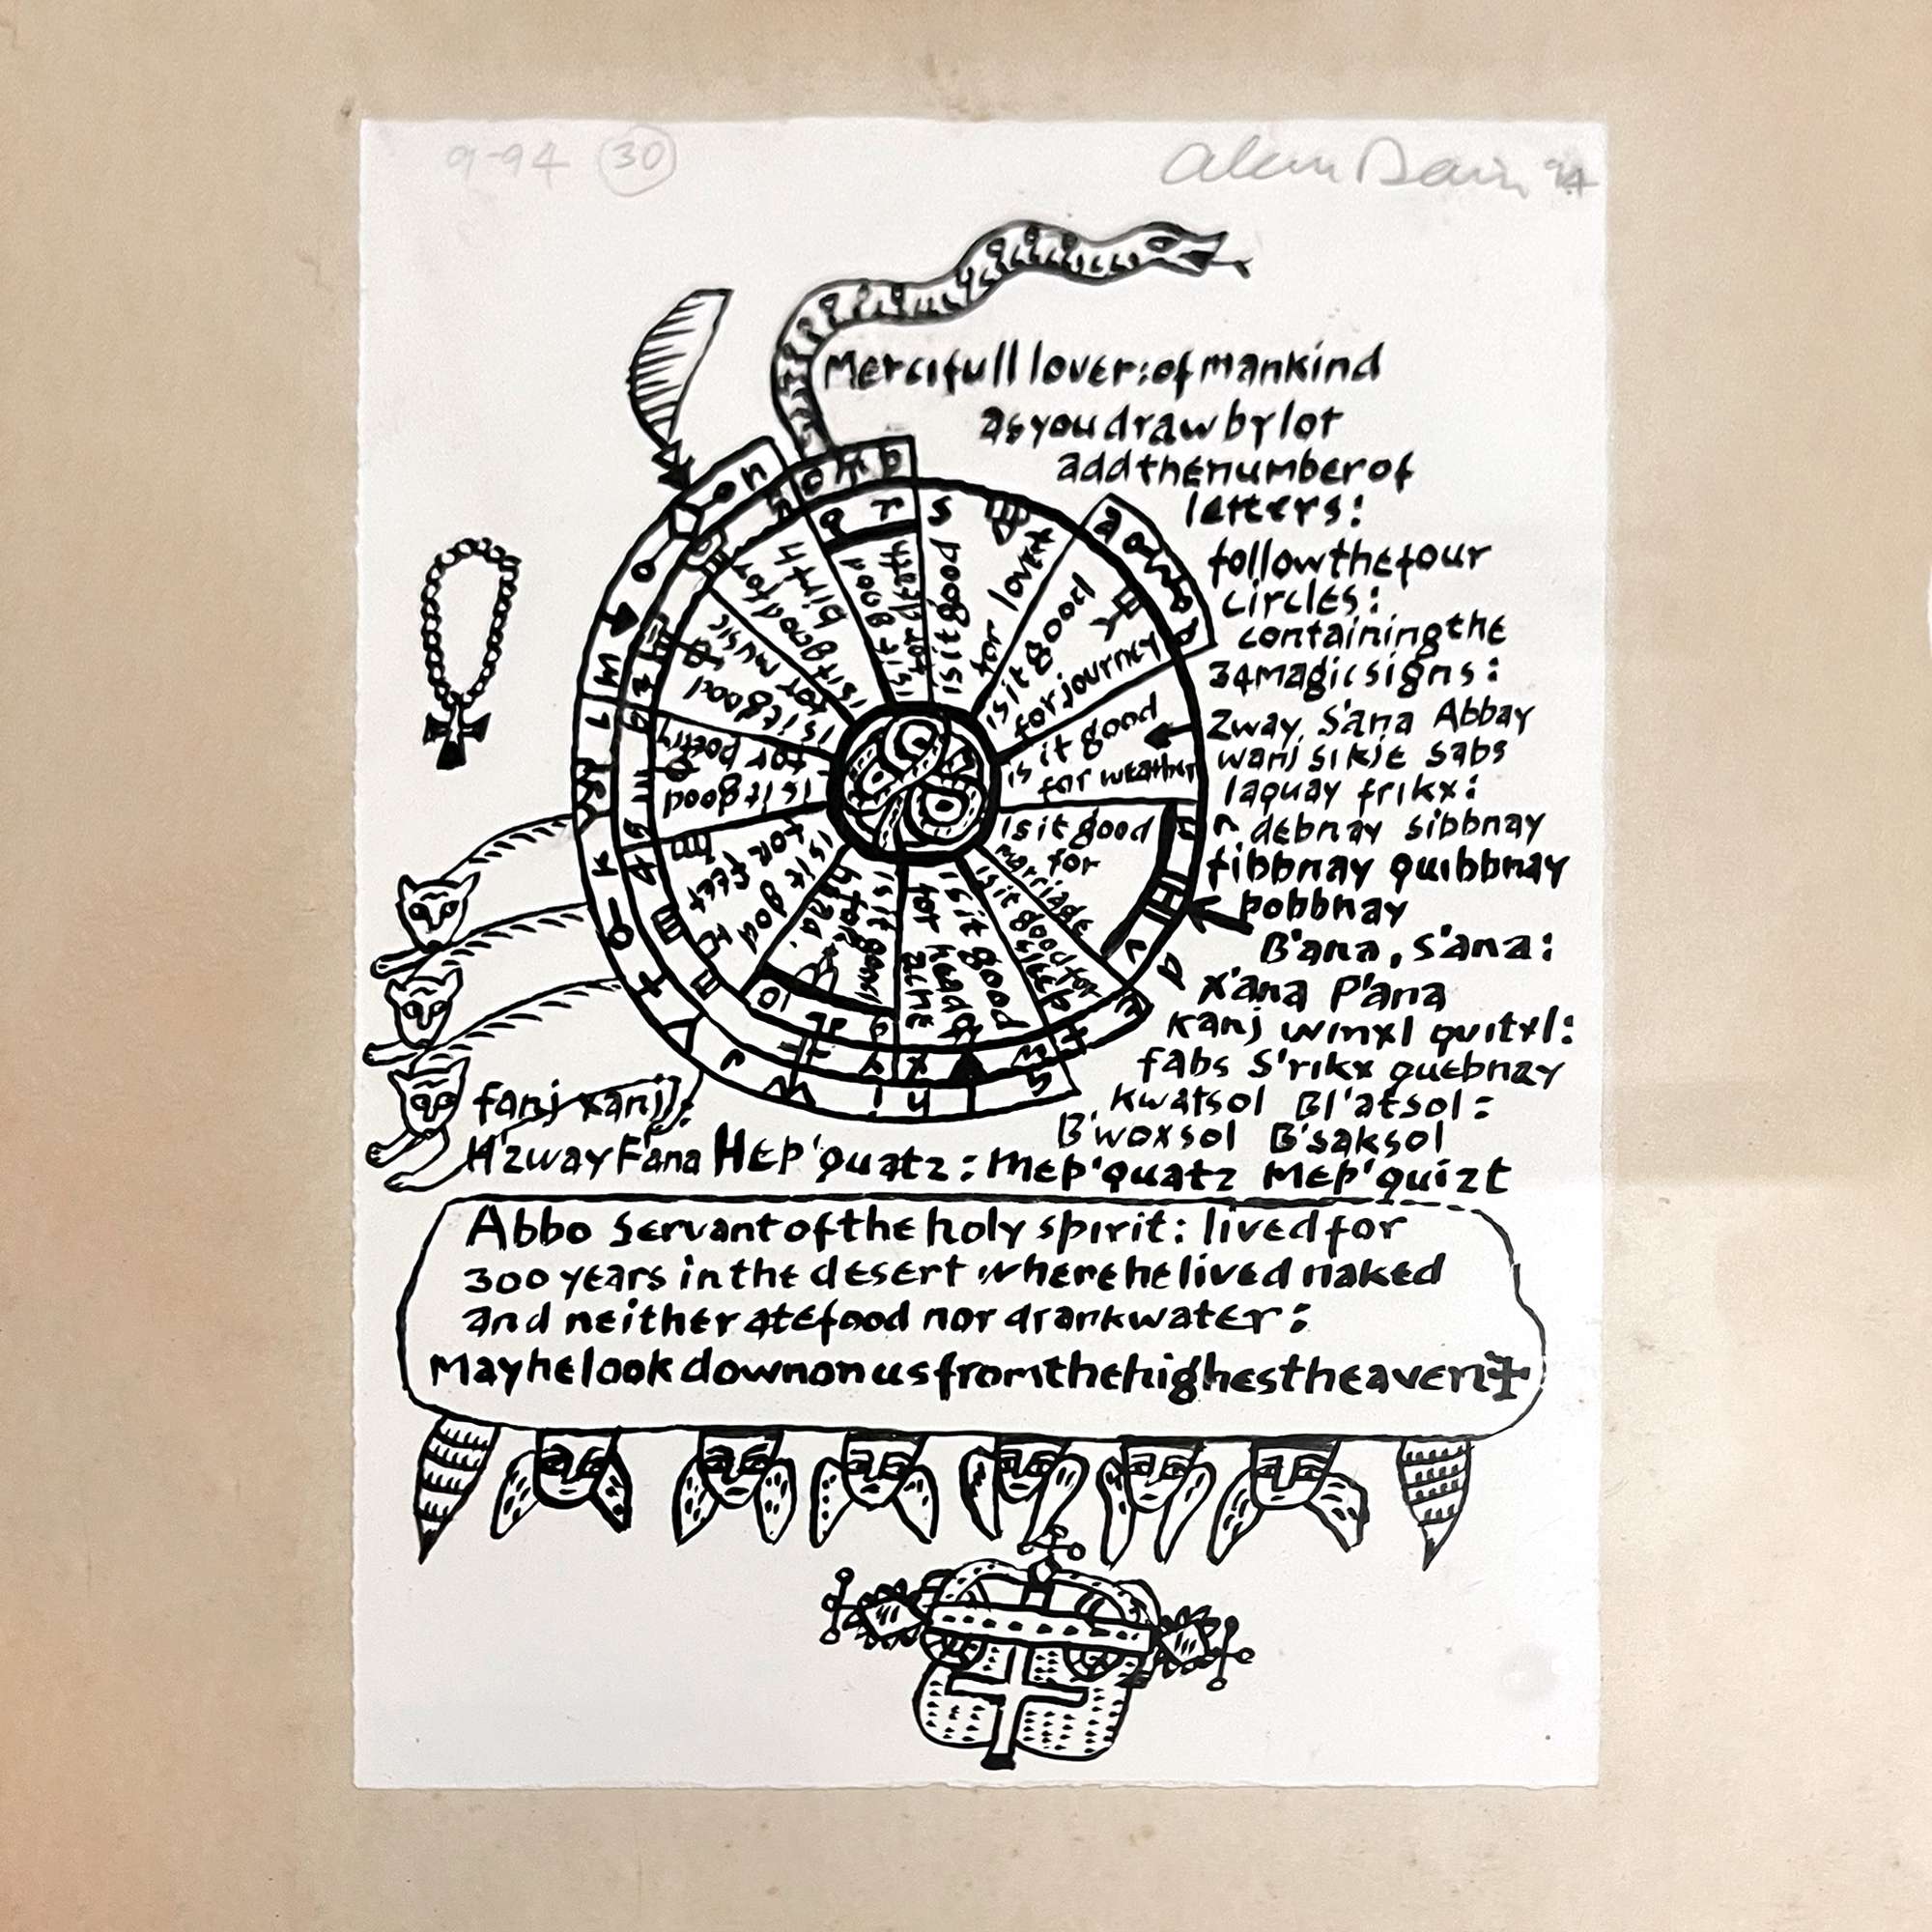 9-94 30
94
Mercifull lover:of mankind
asyoudrawbylot
addthenumberof
letters:
followthefour
circles:
containingthe
34magicsigns:
Zway, S'ana Abbay
wanj sikje sabs
laquay frikx:
debnay sibbnay
fibbnay quibbnay
pobbnay
B'ana, S'ana:
X'ana P'ana
Kanj winxl quitxl:
fabs S'rikx quebnay
Kwatsol Bl'atsol:
B'woxsol B'saksol
fanj xanj:
H'zwayFana HEP'quatz: MEP'quatz MEP'quizt
is it good
for love
is it good
for journey
is it good
for weather
is it good
for
marriage
is it good for
sleep
is it good
for head
ache
is it good
for
is it god
for feet
is it good
for poetry
is it good
for music
is it good for
birth
is it good
for death
Abbo Servantoftheholy spirit: livedfor
300years inthe desert wherehelived naked
and neither atefood nor drankwater:
Mayhelookdownonusfromthehighestheaven